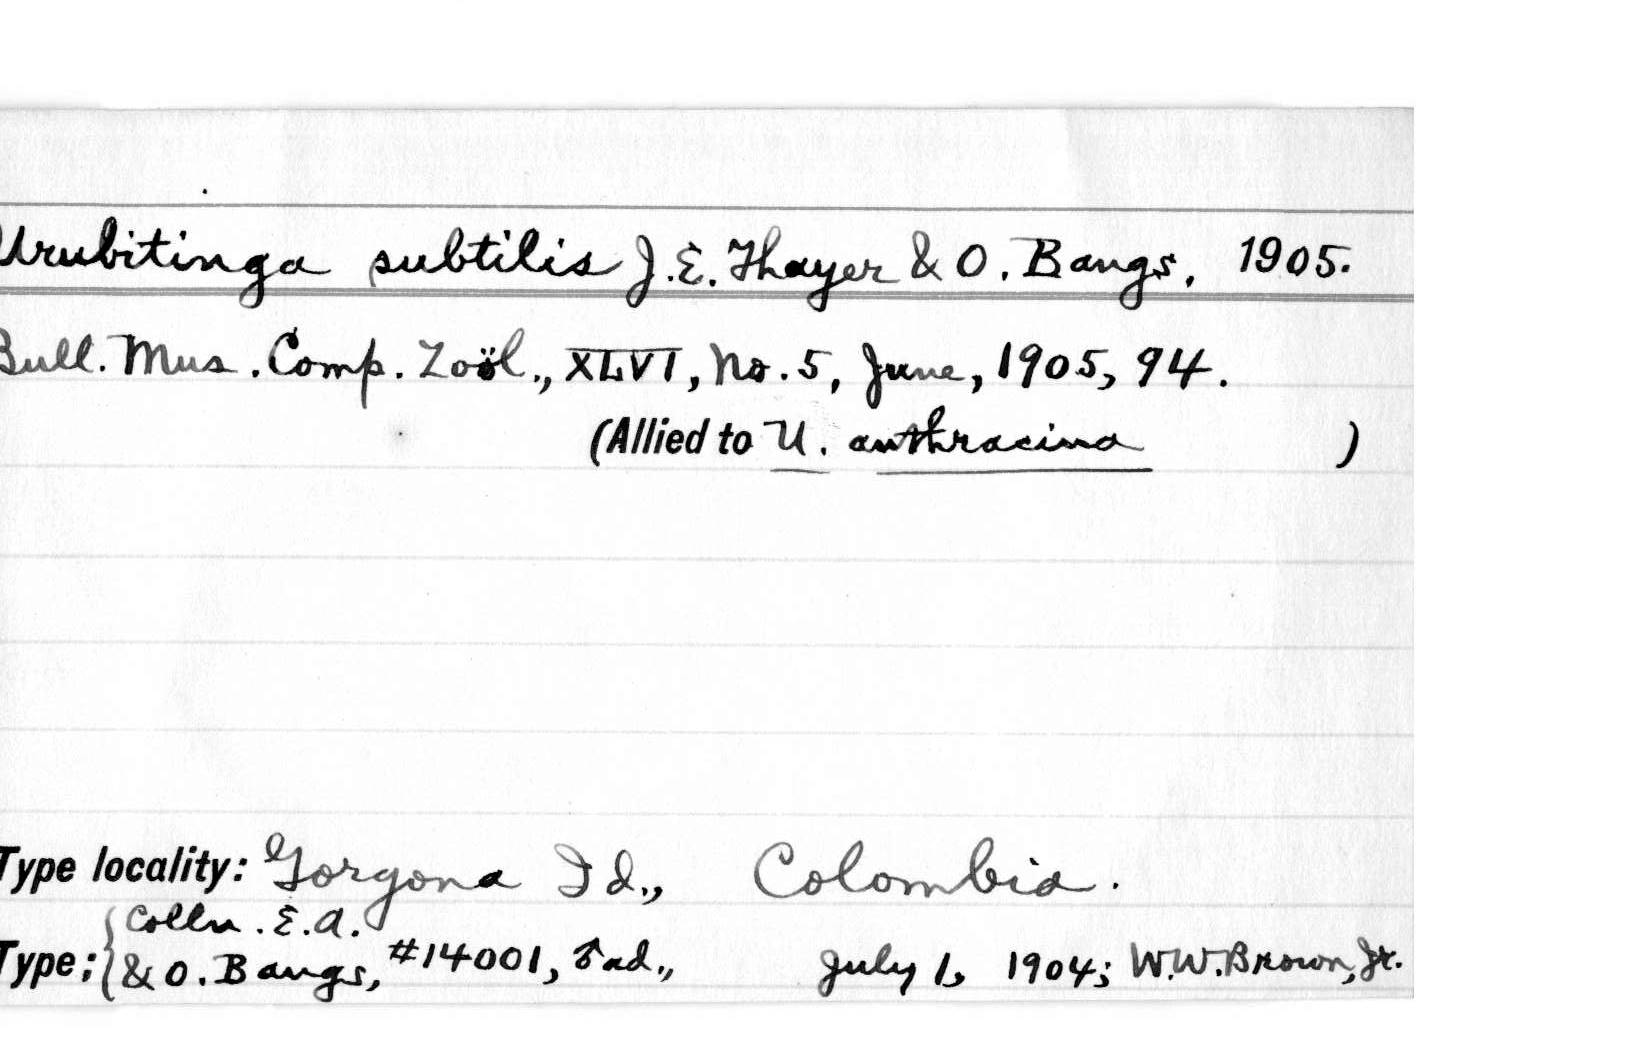 Urubitinga subtilis J.E. Thayer & O. Bangs, 1905.
Bull. Mus. Comp. Zoöl., XLVI, No. 5, June, 1905, 94.
(Allied to U. anthracina )
Type locality: Gorgona Id., Colombia.
Colln. E.A.
Type: & O. Bangs, #14001, ♂ ad., July 1, 1904; W.W. Brown, Jr.